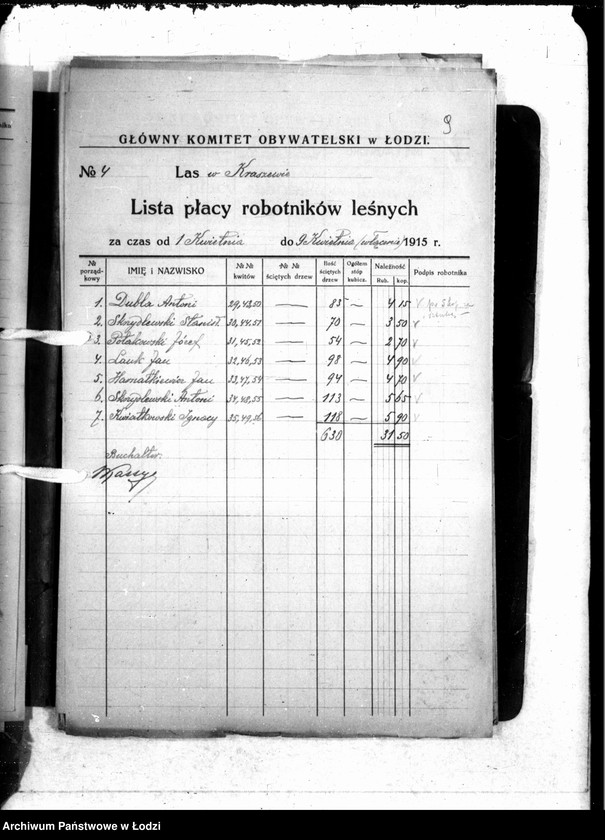 9
GŁÓWNY KOMITET OBYWATELSKI w ŁODZI.
№ 4 Las w Kraszewie
Lista płacy robotników leśnych
za czas od 1 Kwietnia do 9 Kwietnia (włącznie) 1915 r.
№ porządkowy IMIĘ i NAZWISKO №№ kwitów №№ ściętych drzew Ilość ściętych drzew Ogółem stóp kubicz. Należność Rub. kop. Podpis robotnika
1. Dubla Antoni 29,43,50 — 83 ~ 4 15 V po 5 kop.
2. Skrydlewski Stanisł 30,44,51 — 70 ~ 3 50 V
3. Polakowski Józef 31,45,52 — 54 ~ 2 70 V
4. Lauk Jan 32,46,53 — 98 ~ 4 90 V
5. Hamatkiewicz Jan 33,47,54 — 94 ~ 4 70 V
6. Skrydlewski Antoni 34,48,55 — 113 ~ 5 65 V
7. Kwiatkowski Ignacy 35,49,56 — 118 ~ 5 90 V
630 31 50
Buchalter:
Archiwum Państwowe w Łodzi